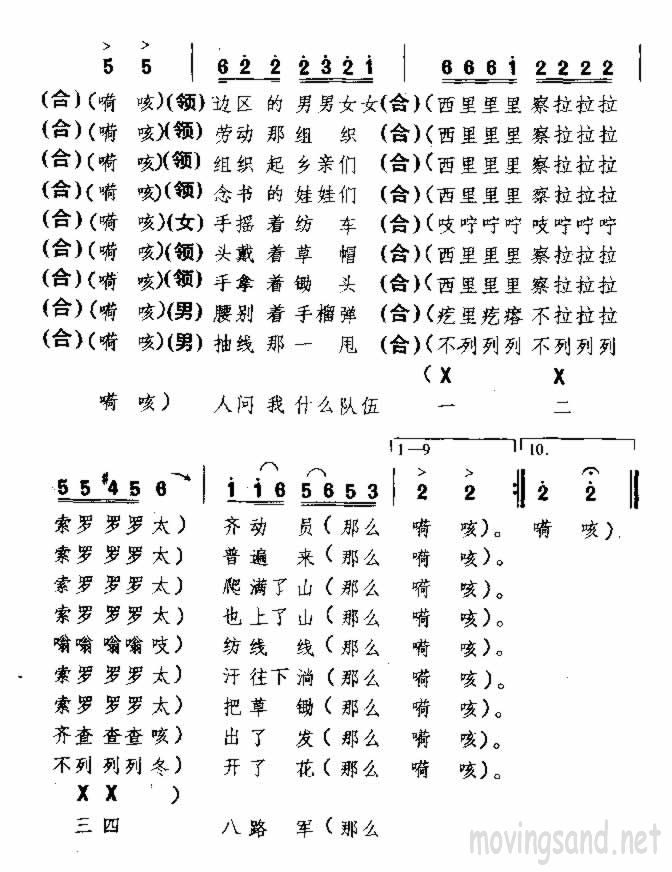 > >
5 5 | 6 2 2 2 3 2 1 | 6 6 6 1 2 2 2 2
(合)(嗬 咳)(领)边区的男男女女(合)(西里里里察拉拉拉
(合)(嗬 咳)(领)劳动那组织(合)(西里里里察拉拉拉
(合)(嗬 咳)(领)组织起乡亲们(合)(西里里里察拉拉拉
(合)(嗬 咳)(领)念书的娃娃们(合)(西里里里察拉拉拉
(合)(嗬 咳)(女)手摇着纺车(合)(吱咛咛咛吱咛咛咛
(合)(嗬 咳)(领)头戴着草帽(合)(西里里里察拉拉拉
(合)(嗬 咳)(领)手拿着锄头(合)(西里里里察拉拉拉
(合)(嗬 咳)(男)腰别着手榴弹(合)(疙里疙瘩不拉拉拉
(合)(嗬 咳)(男)抽线那一甩(合)(不列列列不列列列
(X X
嗬 咳) 人问我什么队伍 一 二
1—9 10.
> >
5 5 #4 5 6 | 1 1 6 5 6 5 3 | 2 2 :| 2 2 ‖
索罗罗罗太) 齐动员(那么 嗬 咳)。 嗬 咳)
索罗罗罗太) 普遍来(那么 嗬 咳)。
索罗罗罗太) 爬满了山(那么 嗬 咳)。
索罗罗罗太) 也上了山(那么 嗬 咳)。
嗡嗡嗡嗡吱) 纺线线(那么 嗬 咳)。
索罗罗罗太) 汗往下淌(那么 嗬 咳)。
索罗罗罗太) 把草锄(那么 嗬 咳)。
齐查查查咳) 出了发(那么 嗬 咳)。
不列列列冬) 开了花(那么 嗬 咳)。
X X )
三四 八路军(那么
movingsand.net